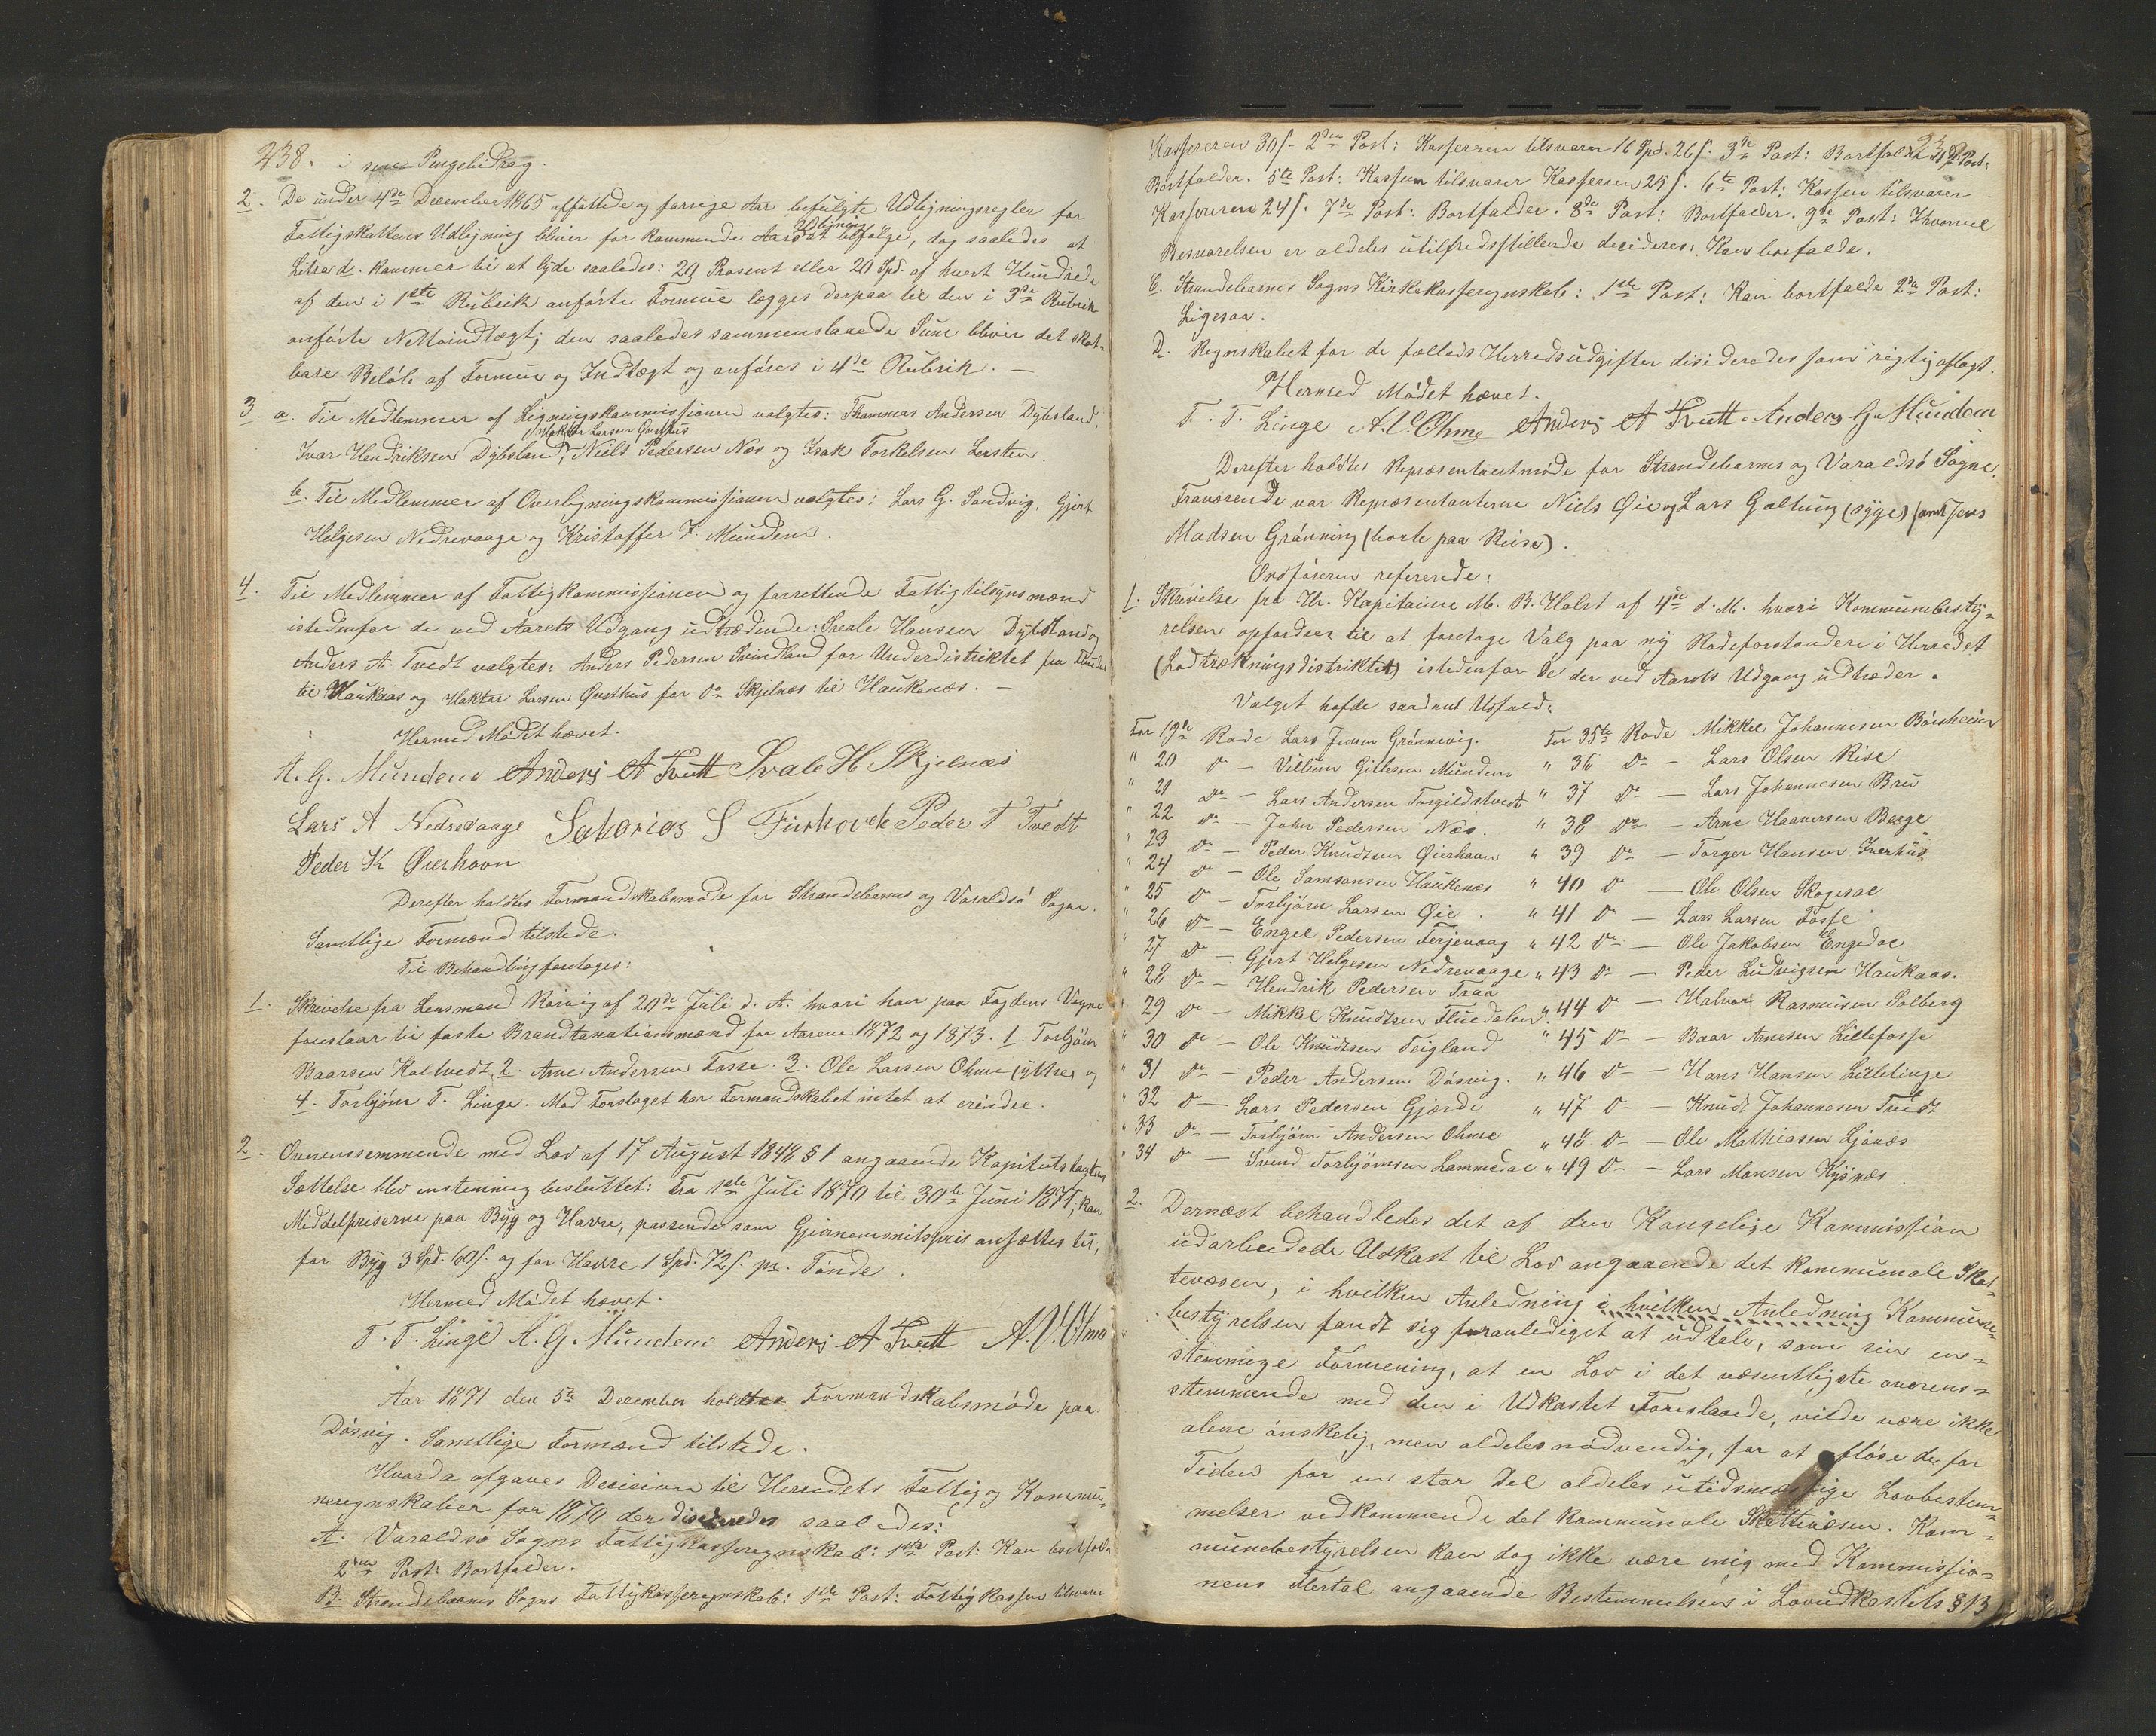 238. i Pengebidrag.
2. De under 4de December 1865 affattede og forrige Aar befulgte Udligningsregler for
Fattigskattens Udligning bliver for kommende Aars Udligning at befølge, dog saaledes at
Litra d. kommer til at lyde saaledes: 20 Prosent eller 20 Spd. af hvert Hundrede
af den i 1ste Rubrik anførte Formue lægges derpaa til den i 3de Rubrik
anførte Nettoindtægt; den saaledes sammenslaaede Sum bliver det skat-
bare Beløb af Formue og Indtægt og anføres i 4de Rubrik. —
3. a. Til Medlemmer af Ligningskommissionen valgtes: Thommas Andersen Dybsland,
Ivar Hendriksen Dybsland, Haktor Larsen Qvesthus Niels Pedersen Nes og Isak Torkelsen Lersten.
b. Til Medlemmer af Overligningskommissionen valgtes: Lars G. Sandvig, Gjert
Helgesen Nedrevaage og Kristoffer J. Mundem.
4. Til Medlemmer af Fattigkommissionen og forrettende Fattigtilsynsmænd
istedenfor de ved Aarets Udgang udtrædende: Sreale Hansen Dybsland og
Anders A. Tvedt valgtes: Anders Pedersen Svindland for Underdistriktet fra
til Haukaas og Haktor Larsen Qvesthus for Do Skjelnæs til Haukenæs. —
Hermed Mødet hævet.
A. G. Mundem Anders A Tvett Svale H Skjelnæs
Lars A Nedrevaage Sakarias S Furhovde Peder T Tvedt
Peder K Øierhavn
Derefter holdtes Formandskabsmøde for Strandebarms og Varaldsø Sogne.
Samtlige Formænd tilstede.
Til Behandling foretoges:
1. Skrivelse fra Lensmand Røsvig af 20de Juli d. A. hvori han paa Fogdens Vegne
foreslaar til faste Brandtaxationsmænd for Aarene 1872 og 1873. 1. Torbjørn
Baarsen Kaltvedt, 2. Arne Andersen Fosse. 3. Ole Larsen Ohme (yttre) og
4. Torbjørn T. Linge. Mod Forslaget har Formandskabet intet at erindre.
2. Overenssemmende med Lov af 17 August 1848 § 1 angaaende Kapitelstaxters
Sættelse blev enstemmig besluttet: Fra 1ste Juli 1870 til 30te Juni 1871, kan
Middelpriserne paa Byg og Havre, passende som Gjennemsnitspris ansættes til,
for Byg 3 Spd. 60 s. og for Havre 1 Spd. 72 s. pr. Tønde.
Hermed Mødet hævet.
T. T. Linge A. G. Mundem Anders A Tvett A. O Ohme
Aar 1871 den 5te December holdtes Formandskabsmøde paa
Døsvig. Samtlige Formænd tilstede.
Hvorda afgaves Decision til Herredets Fattig og Kommu-
neregnskaber for 1870 der disideredes saaledes:
A. Varaldsø Sogns Fattigkasseregnskab: 1ste Post: Kan bortfalde
2den Post: Bortfalder.
B. Strandebarms Sogns Fattigkasseregnskab: 1ste Post: Fattigkassen tilsvarer
Kassereren 30 s. 2den Post: Kassereren tilsvarer 16 Spd. 26 s. 3de Post: Bortfalder 4de Post:
Bortfalder. 5te Post: Kassen tilsvarer Kassereren 25 s. 6te Post: Kassen tilsvarer
Kassereren 24 s. 7de Post: Bortfalder. 8de Post: Bortfalder. 9de Post: Ihvorvel
Besvarelsen er aldeles utilfredsstillende decideres: Kan borfalde.
C. Strandebarms Sogns Kirkekasseregnskab: 1ste Post: Kan bortfalde 2den Post:
Ligesaa.
D. Regnskabet for de fælleds Herredsudgifter disideredes som rigtig aflagt.
Hermed Mødet hævet.
T. T. Linge A. O. Ohme Anders A Tvett. Anders G. Mundem
Derefter holdtes Repræsentantmøde for Strandebarms og Varaldsø Sogne.
Fraværende var Repræsentanterne Niels Øie og Lars Galtung (syge) samt Jens
Madsen Grønning (borte paa Reise).
Ordføreren refererede:
1. Skrivelse fra Hr. Kapitaine M. B. Halst af 4de d. M. hvori Kommunebesty-
relsen opfordres til at foretage Valg paa ny Rodeforstandere i Herredet
(Lodtrækningsdistriktet) istedenfor de der ved Aarets Udgang udtræder.
Valget hafde saadant Udfald:
For 19de Rode Lars Jensen Grønnevig. For 35te Rode Mikkel Johannesen Børsheim
" 20 Do — Villum Gitlesen Mundem " 36 Do — Lars Olsen Rise
" 21 Do — Lars Andersen Torgilstvedt " 37 Do — Lars Johannesen Bru
" 22 Do — John Pedersen Nes. " 38 Do — Arne Haaversen Berge
" 23 Do — Peder Knudsen Øierhavn " 39 Do — Torger Hansen Inerhus
" 24 Do — Ole Samsonsen Haukenæs " 40 Do — Ole Olsen Skogesal
" 25 Do — Torbjørn Larsen Øie. " 41 Do — Lars Larsen Fosse
" 26 Do — Engel Pedersen Ferjevaag " 42 Do — Ole Jakobsen Engedal
" 27 Do — Gjert Helgesen Nedrevaage " 43 Do — Peder Ludvigsen Haukaas.
" 28 Do — Hendrik Pedersen Traa " 44 Do — Halvor Rasmusen Solberg
" 29 Do — Mikkel Knudsen Fluedalen. " 45 Do — Baar Arnesen Lillefosse
" 30 Do — Ole Knudsen Teigland " 46 Do — Hans Hansen Lillelinge
" 31 Do — Peder Andersen Døsvig. " 47 Do — Knudt Johannesen Tvedt
" 32 Do — Lars Pedersen Gjærde " 48 Do — Ole Mathiasen Ljonæs
" 33 Do — Torbjørn Andersen Ohme " 49 Do — Lars Monsen Kysnæs.
" 34 Do — Svend Torbjørnsen Lammedal
2. Dernæst behandledes det af den Kongelige Kommission
udarbeidede Udkast til Lov angaaende det kommunale Skat-
tevæsen; i hvilken Anledning i hvilken Anledning Kommune-
bestyrelsen fandt sig foranlediget at udtale, som sin en-
stemmige Formening, at en Lov i det væsentligste overens-
stemmende med den i Udkastet Foreslaaede, vilde være ikke
alene ønskelig, men aldeles nødvendig, for at afløse de for
Tiden for en stor Del aldeles utidsmæssige Lovbestem-
melser vedkommende det kommunale Skattevæsen. Kom-
munebestyrelsen kan dog ikke være enig med Kommissio-
nens Flertal angaaende Bestemmelsen i Lovudkastets § 13